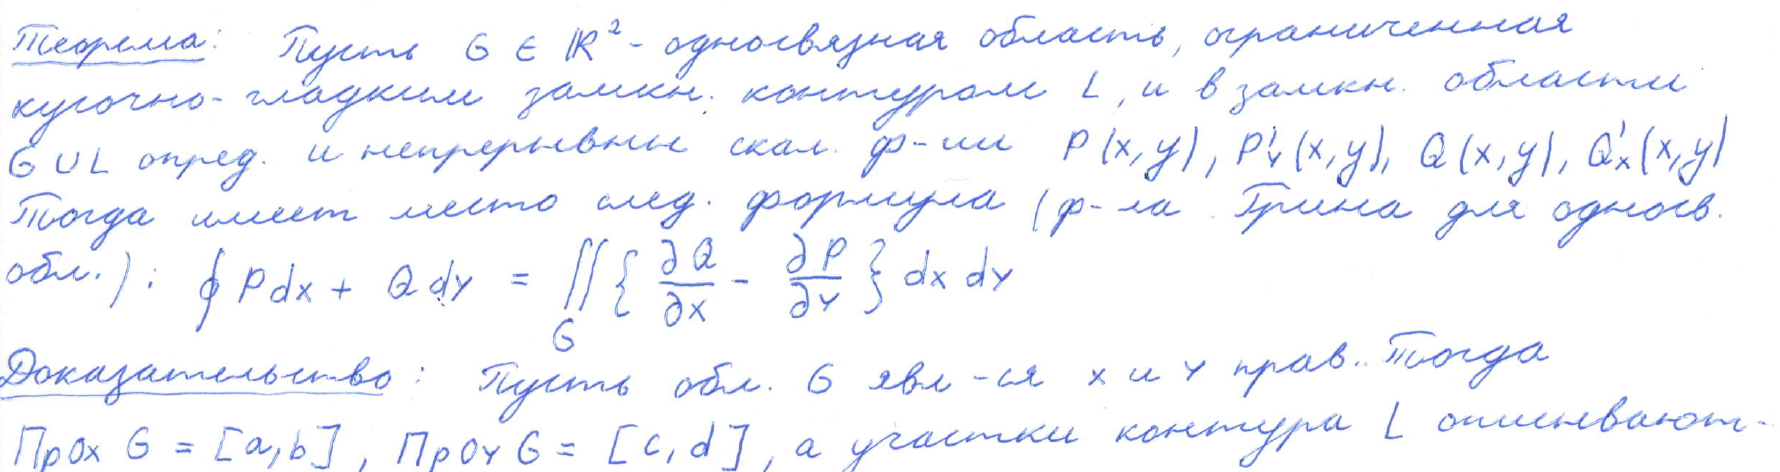 Теорема: Пусть G ∈ ℝ² - односвязная область, ограниченная
кусочно-гладким замкн. контуром L, и в замкн. области
G ∪ L опред. и непрерывны скал. ф-ии P(x,y), P'y(x,y), Q(x,y), Q'x(x,y)
Тогда имеет место след. формула (ф-ла Грина для односв.
обл.): ∮ Pdx + Qdy = ∬_G { ∂Q/∂x - ∂P/∂y } dx dy
Доказательство: Пусть обл. G явл-ся x и y прав.. Тогда
ПрOx G = [a,b], ПрOy G = [c,d], а участки контура L описывают-